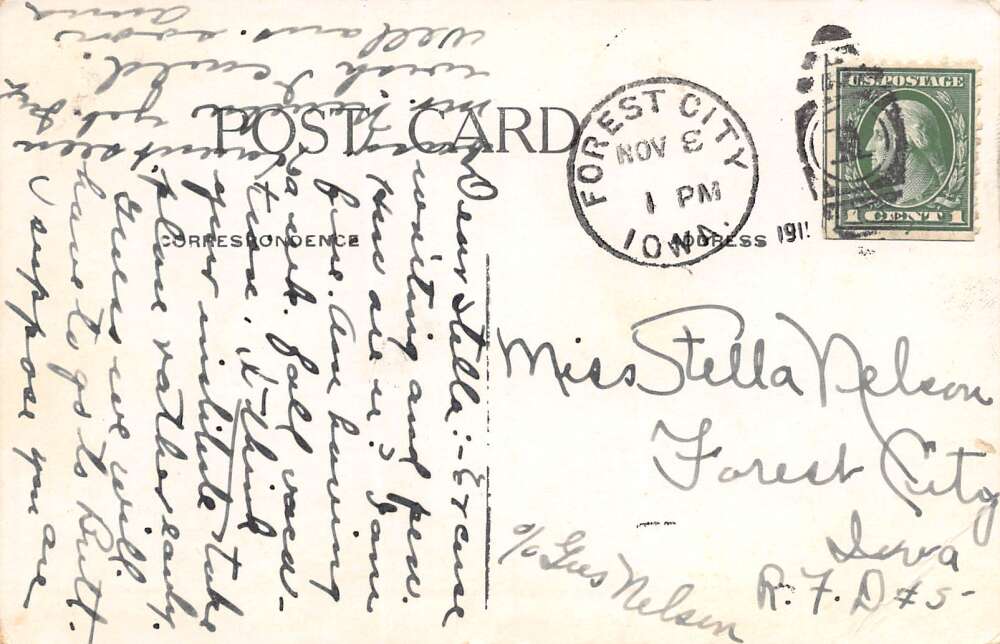 POST CARD
CORRESPONDENCE
ADDRESS
FOREST CITY
NOV 8
1 PM
IOWA.
191
U.S. POSTAGE
1 CENT 1
Dear Stella:- Excuse
writing and pen.
How are u? I am
fine. Am having
a wk. fall vaca-
tion. I think
your institute take
place rather early.
Guess we will
have to go to Britt.
I suppose you are
busy. Haven't seen
Mr. yet. but
wish I could.
Well ans. soon
Anna
Miss Stella Nelson
Forest City
Iowa
R. F. D #5-
c/o Gus Nelson